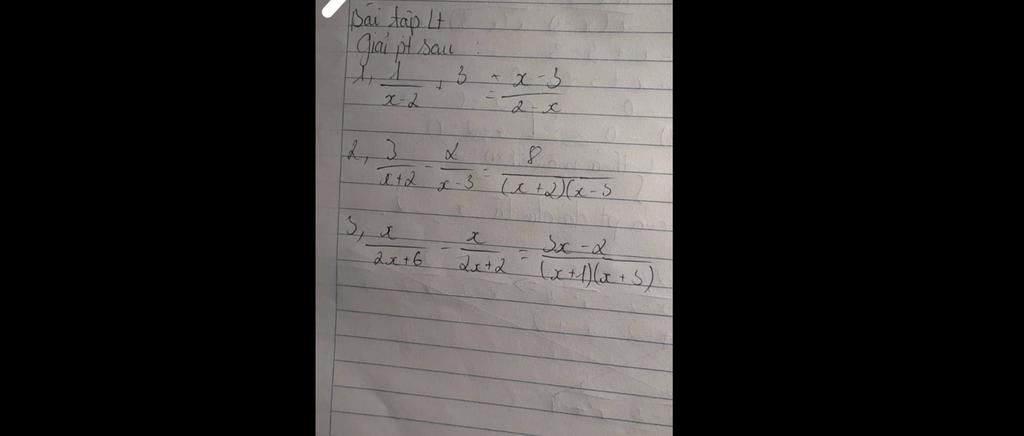 Bài tập Lt
Giải pt sau :
1, 1/(x-2) + 3 = (x-3)/(2-x)
2, 3/(x+2) - 2/(x-3) = 8/((x+2)(x-3
3, x/(2x+6) - x/(2x+2) = (3x-2)/((x+1)(x+3))